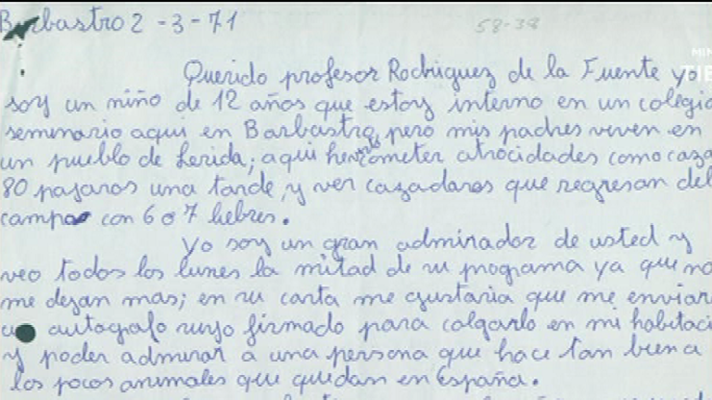 Barbastro 2-3-71
58-38
Querido profesor Rodriguez de la Fuente yo
soy un niño de 12 años que estoy interno en un colegio
seminario aqui en Barbastro, pero mis padres viven en
un pueblo de Lerida; aqui he visto cometer atrocidades como caza
80 pajaros una tarde, y ver cazadores que regresan del
campo con 6 o 7 liebres.
Yo soy un gran admirador de usted y
veo todos los lunes la mitad de su programa ya que no
me dejan mas; en su carta me gustaria que me enviara
autografo suyo firmado para colgarlo en mi habitaci
y poder admirar a una persona que hace tan bien a
los pocos animales que quedan en España.